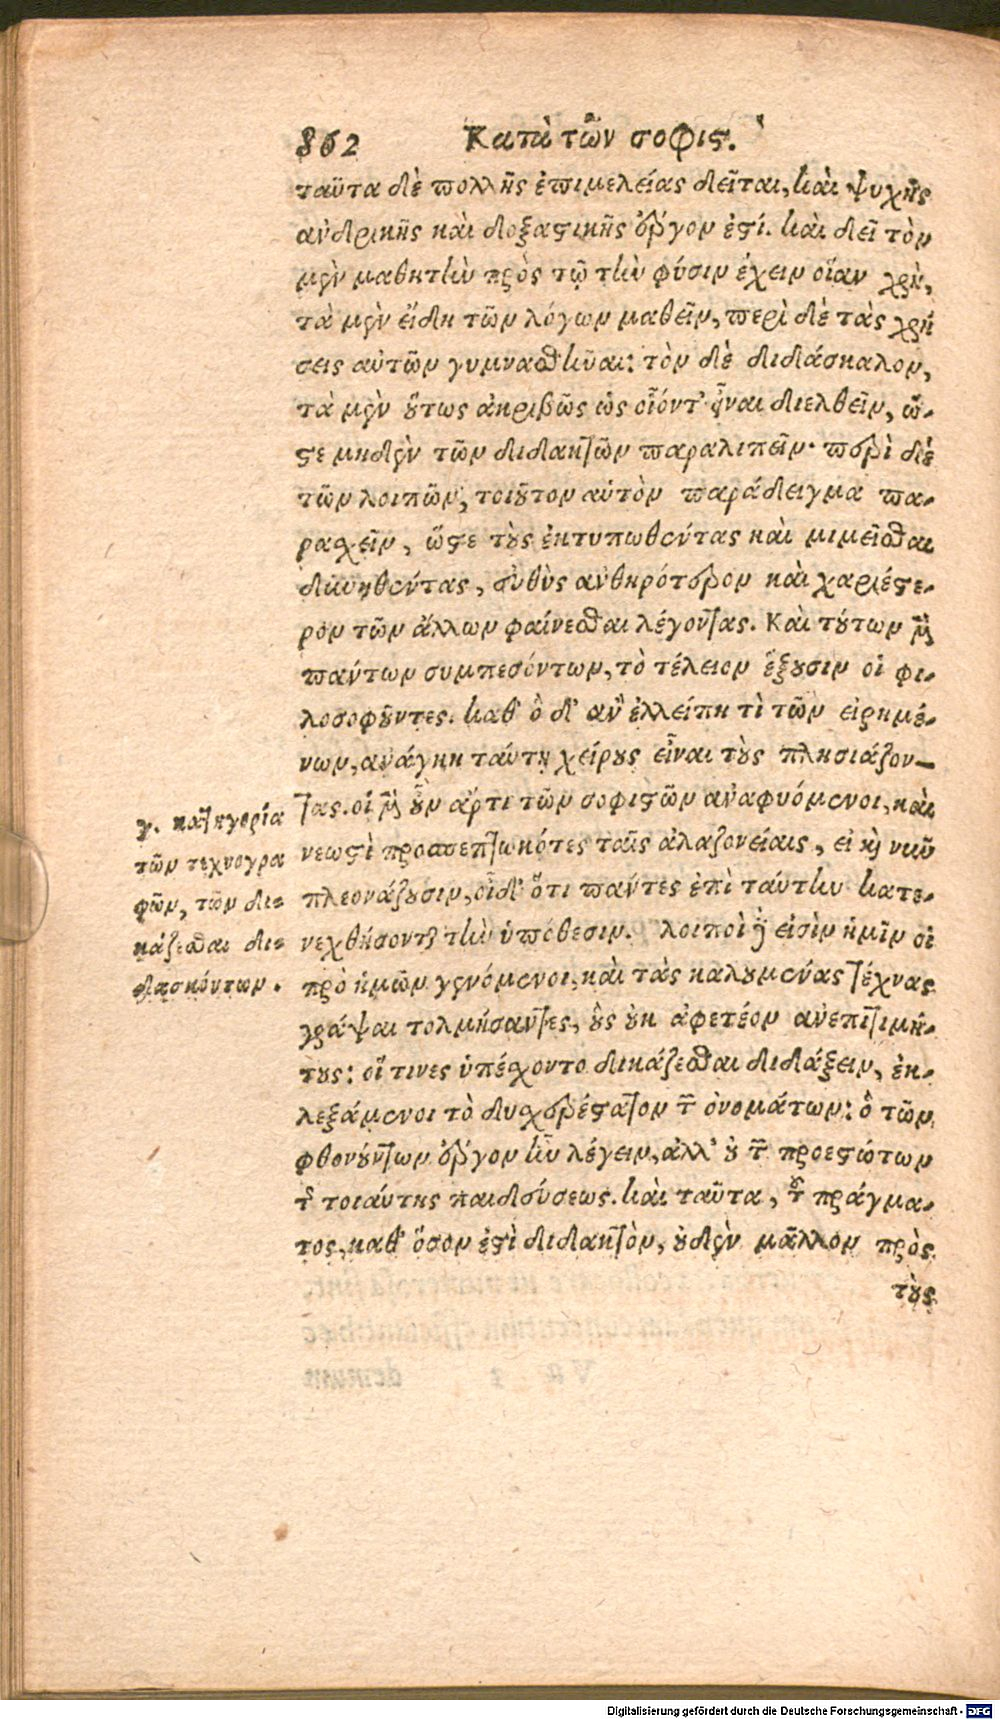 862 Κατὰ τῶν σοφις.
ταῦτα δὲ πολλῆς ἐπιμελείας δεῖται, καὶ ψυχῆς
ἀνδρικῆς καὶ δοξαστικῆς ἔργον ἐστί. καὶ δεῖ τὸν
μὲν μαθητὴν πρὸς τῷ τὴν φύσιν ἔχειν οἵαν χρὴ,
τὰ μὲν εἴδη τῶν λόγων μαθεῖν, περὶ δὲ τὰς χρή
σεις αὐτῶν γυμνασθῆναι: τὸν δὲ διδάσκαλον,
τὰ μὲν οὕτως ἀκριβῶς ὡς οἷόντ' εἶναι διελθεῖν, ὥ-
στε μηδὲν τῶν διδακτῶν παραλιπεῖν· περὶ δὲ
τῶν λοιπῶν, τοιοῦτον αὐτὸν παράδειγμα πα-
ραχεῖν, ὥστε τοὺς ἐκτυπωθέντας καὶ μιμεῖσθαι
δυνηθέντας, εὐθὺς ἀνθηρότερον καὶ χαριέστε-
ρον τῶν ἄλλων φαίνεσθαι λέγοντας. Καὶ τούτων μὲν
πάντων συμπεσόντων, τὸ τέλειον ἕξουσιν οἱ φι-
λοσοφοῦντες. καθ' ὃ δ' ἂν ἐλλείπῃ τὶ τῶν εἰρημέ-
νων, ἀνάγκη ταύτῃ χείρους εἶναι τοὺς πλησιάζον-
τας. οἱ μὲν οὖν ἄρτι τῶν σοφιστῶν ἀναφυόμενοι, καὶ
νεωστὶ προσπεπτωκότες ταῖς ἀλαζονείαις, εἰ καὶ νῦν
πλεονάζουσιν, οἶδ' ὅτι πάντες ἐπὶ ταύτην κατε-
νεχθήσονται τὴν ὑπόθεσιν. λοιποὶ δ' εἰσὶν ἡμῖν οἱ
πρὸ ἡμῶν γενόμενοι, καὶ τὰς καλουμένας τέχνας
γράψαι τολμήσαντες, οὓς οὐκ ἀφετέον ἀνεπιτιμή-
τους: οἵ τινες ὑπέσχοντο δικάζεσθαι διδάξειν, ἐκ-
λεξάμενοι τὸ δυσχερέστατον τῶν ὀνομάτων: ὃ τῶν
φθονούντων ἔργον ἦν λέγειν, ἀλλ' οὐ τῶν προεστώτων
τῆς τοιαύτης παιδεύσεως. καὶ ταῦτα, τοῦ πράγμα-
τος, καθ' ὅσον ἐστὶ διδακτὸν, οὐδὲν μᾶλλον πρὸς
τοὺς
γ. κατηγορία
τῶν τεχνογρα
φῶν, τῶν δι-
κάζεσθαι δι-
δασκόντων.
Digitalisierung gefördert durch die Deutsche Forschungsgemeinschaft - DFG